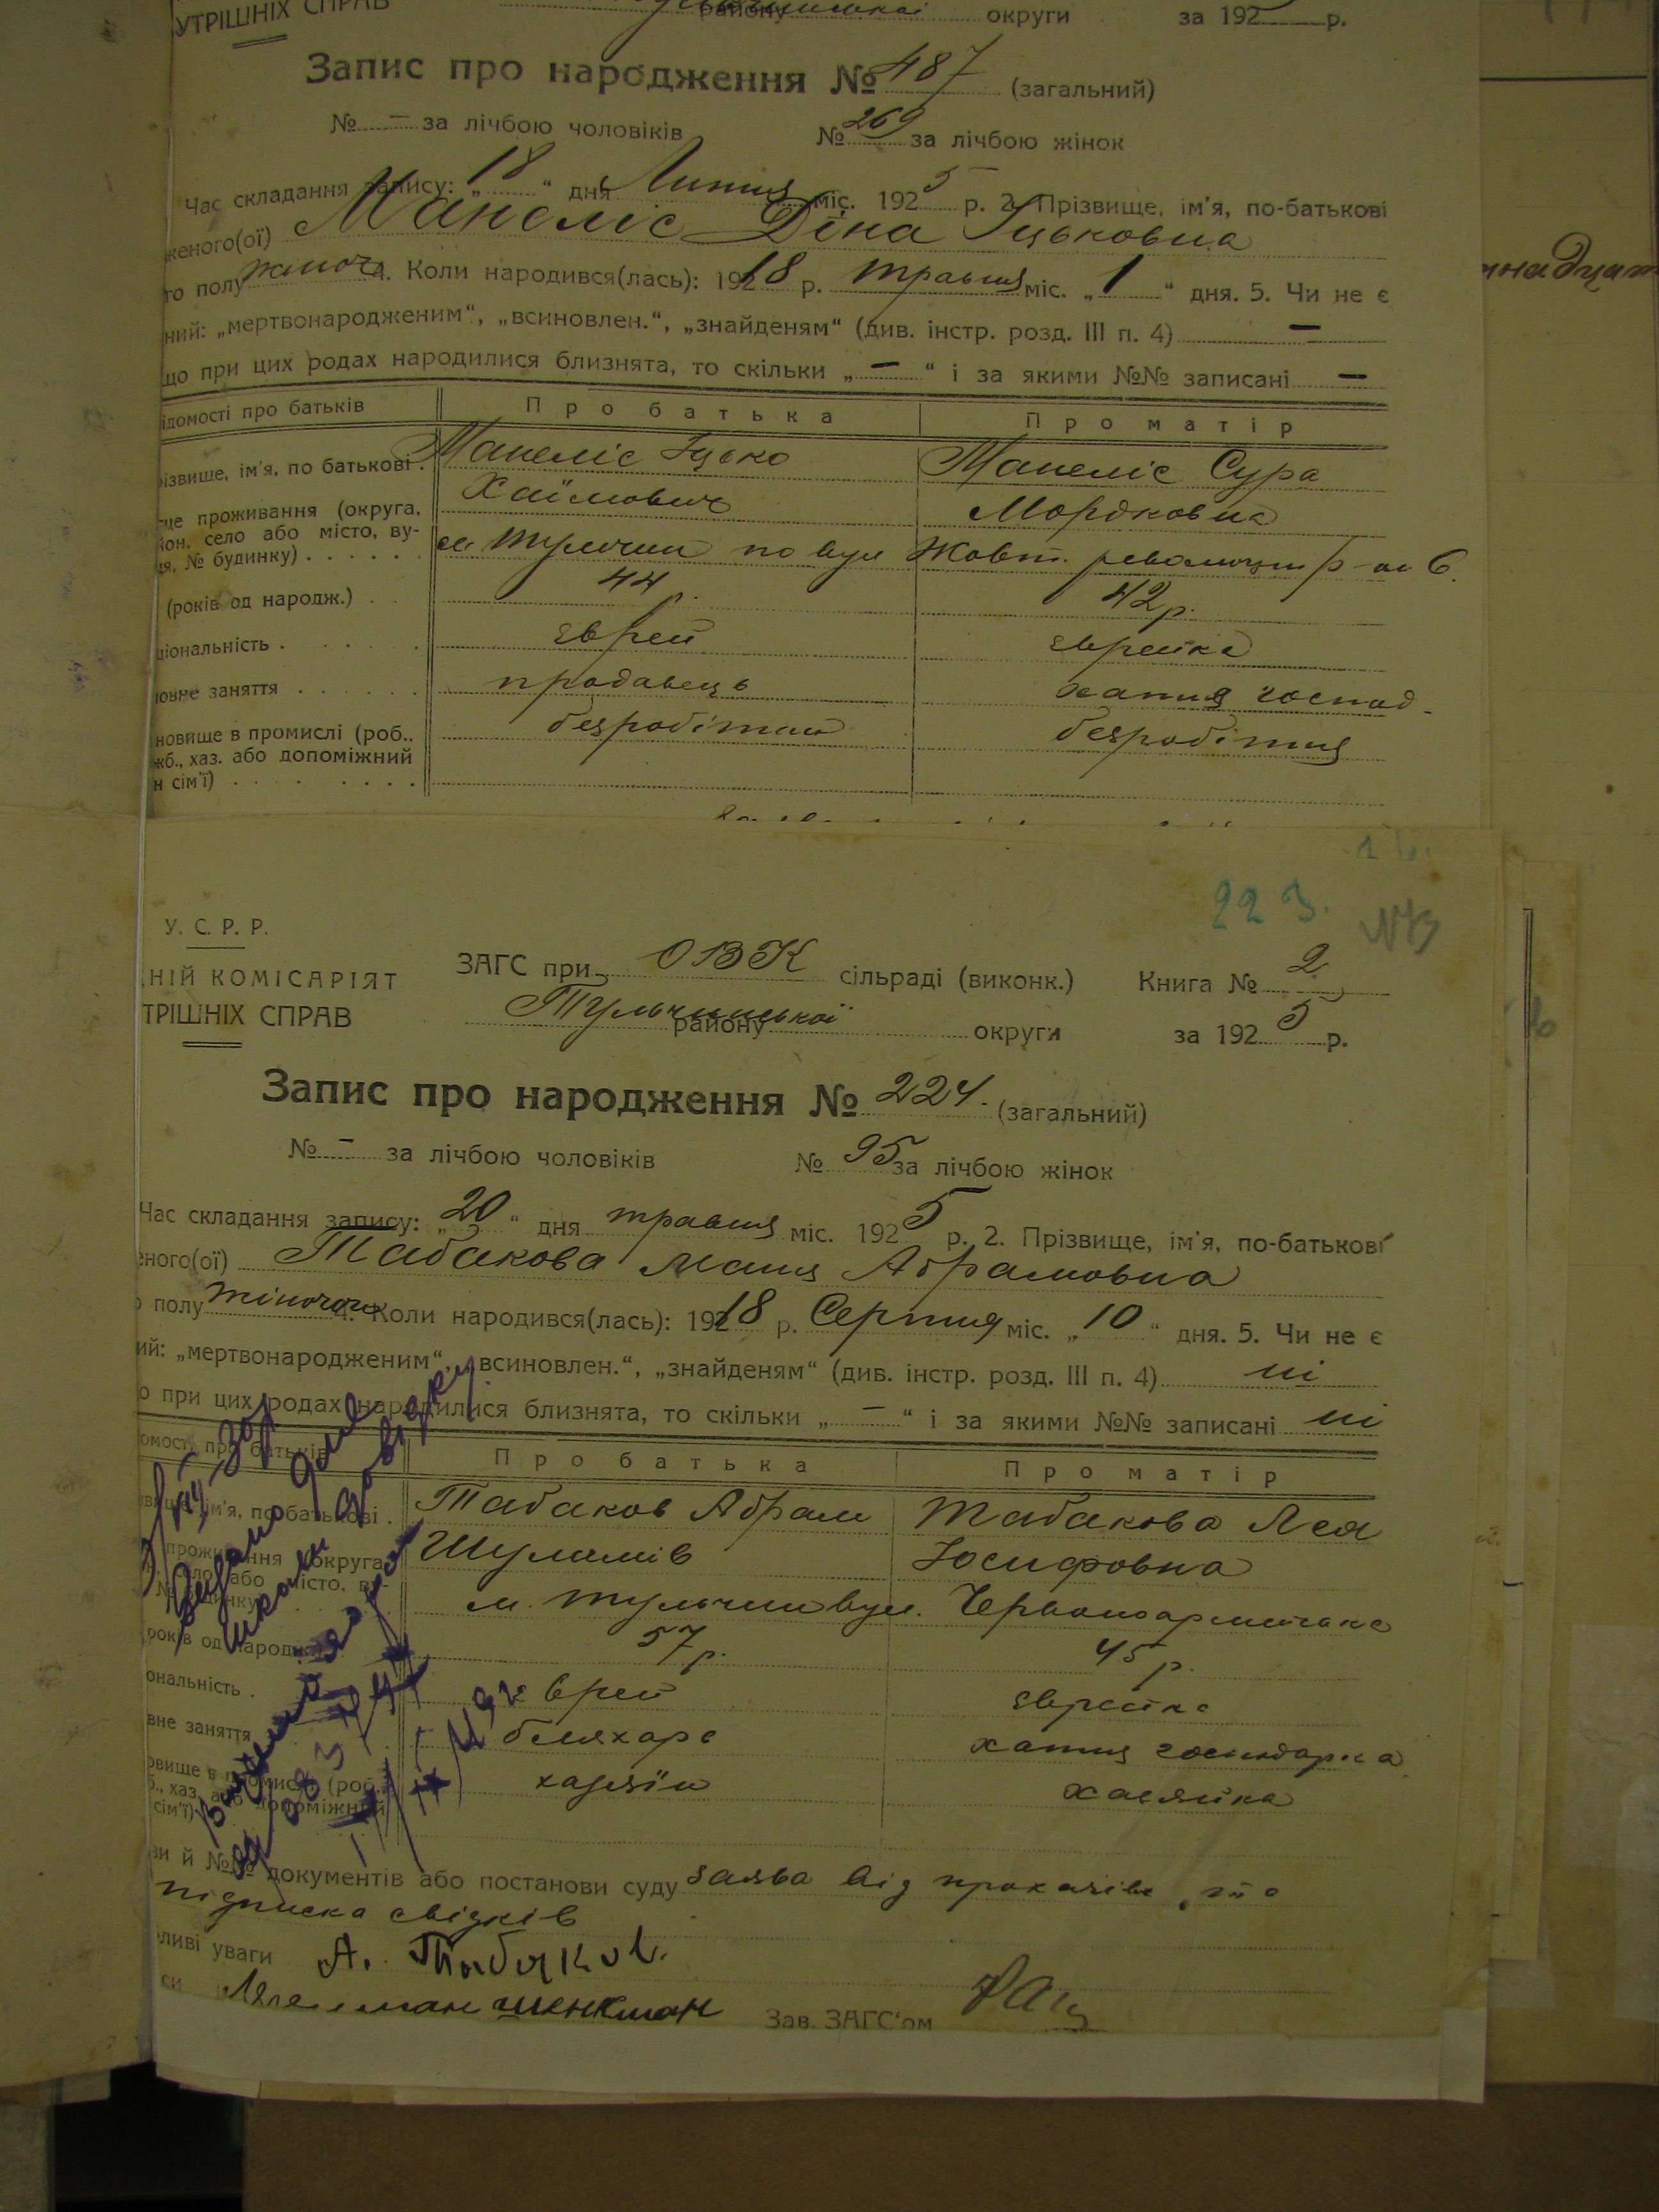 УТРІШНІХ СПРАВ району округи за 192 р.
Запис про народження № 487 (загальний)
№ — за лічбою чоловіків № 269 за лічбою жінок
Час складання запису: „18“ дня Липня міс. 1925 р. 2. Прізвище, ім'я, по-батькові
женого(ої) Манеліс Діна Іцьковна
го полу жіноч. 4. Коли народився(лась): 19218 р. травня міс. „1“ дня. 5. Чи не є
ний: „мертвонародженим“, „всиновлен.“, „знайденям“ (див. інстр. розд. III п. 4) —
що при цих родах народилися близнята, то скільки „—“ і за якими №№ записані —
ідомості про батьків Про батька Про матір
різвище, ім'я, по батькові . Манеліс Іцько Манеліс Сура
Хаїмович Мордковна
це проживання (округа,
йон, село або місто, ву-
ця, № будинку) . . . . . . м Тульчин по вул Жовт. революції
(років од народж.) . . 44 р. 42 р.
ціональність . . . . . єврей єврейка
ловне заняття . . . . . . продавець хатня господ.
новище в промислі (роб.. безробітний безробітня
жб., хаз. або допоміжний
н сім'ї) . . . . . . . .
22 3. N73
У. С. Р. Р.
НІЙ КОМІСАРІЯТ ЗАГС при ОВК сільраді (виконк.) Книга № 2
ТРІШНІХ СПРАВ Тульчинської району округи за 1925 р.
Запис про народження № 224. (загальний)
№ — за лічбою чоловіків № 95 за лічбою жінок
Час складання запису: „20“ дня травня міс. 1925 р. 2. Прізвище, ім'я, по-батькові
еного(ої) Табакова Маня Абрамовна
о полу жіночої 4. Коли народився(лась): 19218 р. Серпня міс. „10“ дня. 5. Чи не є
ий: „мертвонародженим“, „всиновлен.“, „знайденям“ (див. інстр. розд. III п. 4) ні
о при цих родах народилися близнята, то скільки „—“ і за якими №№ записані ні
омості про батьків Про батька Про матір
звище, ім'я, по батькові . Табаков Абрам Табакова Лея
Шулимів Юсифовна
проживання (округа,
село або місто, ву-
№ будинку) м. Тульчин вул. Червоноармійська
років од народж. 57 р. 45 р.
ональність . єврей єврейка
вне заняття бляхаρ хатня господарка
овище в промислі (роб., хазяїн хазяйка
б., хаз. або допоміжний
сім'ї)
Видано для
школи довідку
зи й №№ документів або постанови суду заява від прохачів, та
підписка свідків
ливі уваги А. Табаков.
си шенкман Зав. ЗАГС'ом